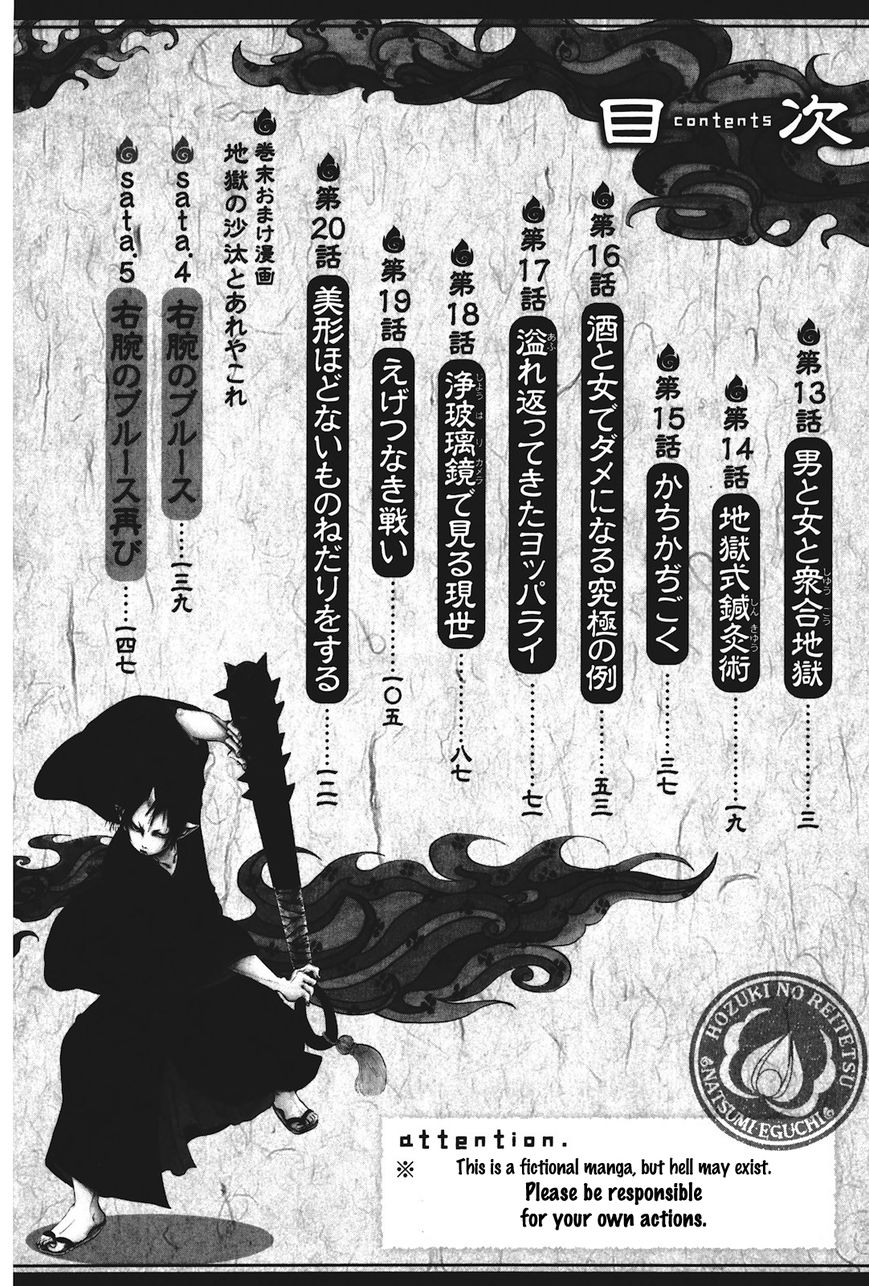 目 contents 次
第13話 男と女と衆合地獄……………三
第14話 地獄式鍼灸術……………一九
第15話 かちかぢごく…………三七
第16話 酒と女でダメになる究極の例………五三
第17話 溢れ返ってきたヨッパライ……………七一
第18話 浄玻璃鏡で見る現世…………八七
第19話 えげつなき戦い…………一〇五
第20話 美形ほどないものねだりをする………一二一
巻末おまけ漫画
地獄の沙汰とあれやこれ
sata.4 右腕のブルース……一三九
sata.5 右腕のブルース再び……一四七
HOZUKI NO REITETSU
NATSUMI EGUCHI
attention.
※ This is a fictional manga, but hell may exist.
Please be responsible
for your own actions.